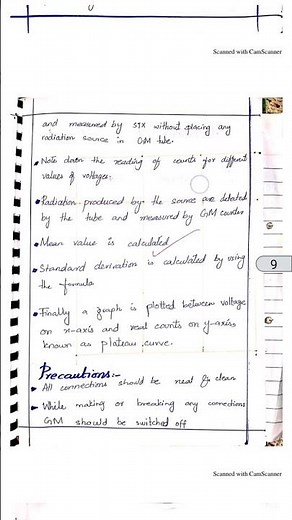 Scanned with CamScanner
and measured by STX without placing any
radiation source in GM tube.
• Note down the reading of counts for different
values of voltages.
• Radiation produced by the source are detated
by the tube and measured by GM counter
• Mean value is calculated
• Standard derivation is calculated by using
the formula
• Finally a graph is plotted between voltage
on x-axis and real counts on y-axis
known as plateau curve.
9
Precautions:-
• All connections should be neat & clean
• While making or breaking any connections
GM should be switched off
Scanned with CamScanner